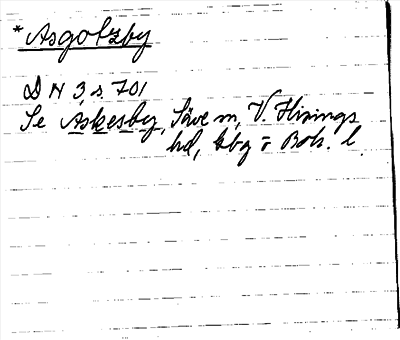 * Asgotzby
D N 3 s. 701
Se Askesby, Säve sn, V. Hisings
hd, Gbg o Boh. l.